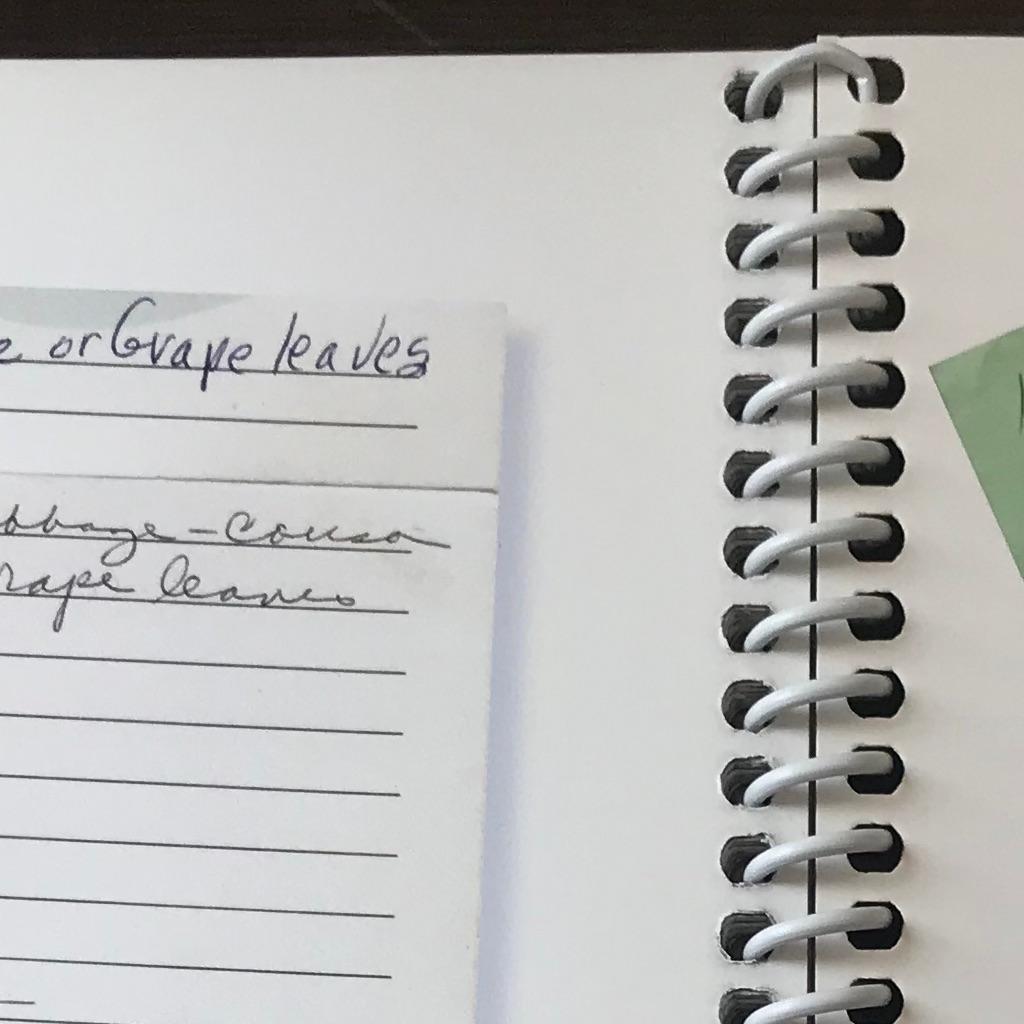 or Grape leaves
bbage - Cousa
rape leaves